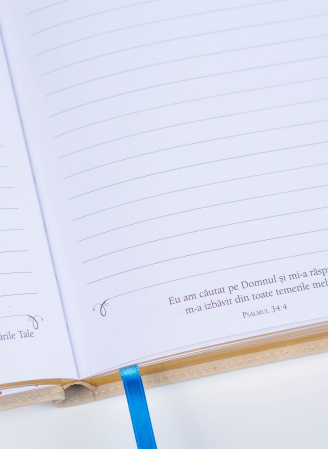 Tale
Eu am căutat pe Domnul și mi-a
m-a izbăvit din toate temerile
Psalmul 34:4